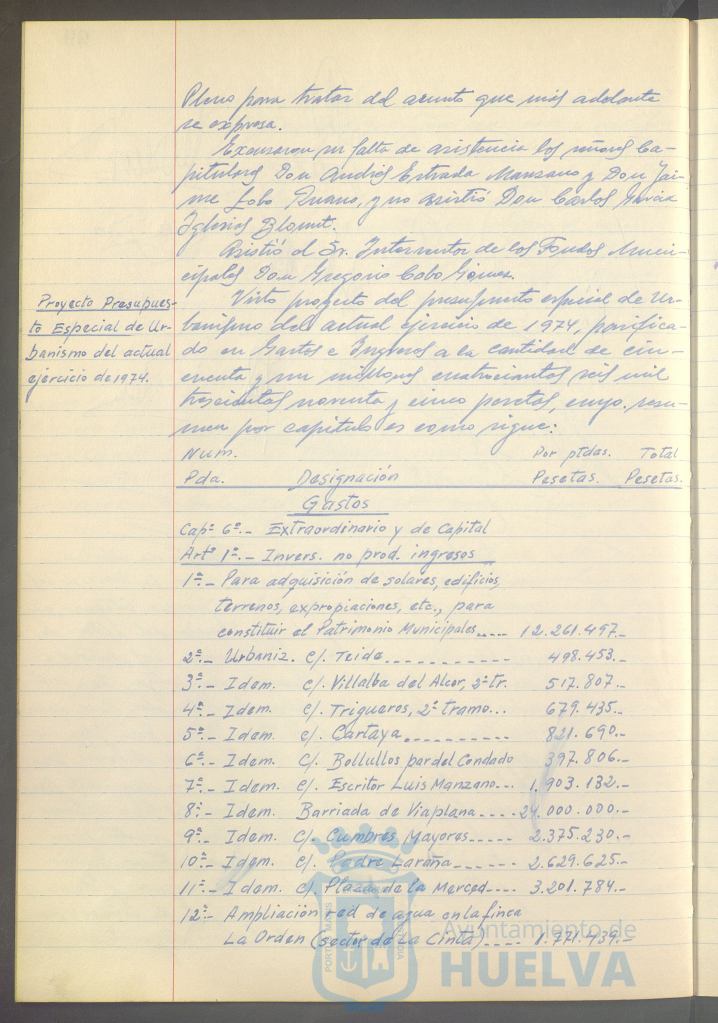 Pleno para tratar del asunto que más adelante
se expresa.
Excusaron su falta de asistencia los señores Ca-
pitulares Don Andrés Estrada Manzano y Don Jai-
me Lobo Ruano, y no asistió Don Carlos García
Iglesias Blount.
Asistió el Sr. Interventor de los Fondos Muni-
cipales Don Gregorio Cobo Gómez.
Proyecto Presupues-
to Especial de Ur-
banismo del actual
ejercicio de 1974.
Visto proyecto del presupuesto especial de Ur-
banismo del actual ejercicio de 1974, panifica-
do en Gastos e Ingresos a la cantidad de cin-
cuenta y un millones cuatrocientas seis mil
trescientas noventa y cinco pesetas, cuyo resu-
men por capítulo es como sigue:
Num. Por ptdas. Total
Pda. Designación Pesetas. Pesetas.
Gastos
Capº 6º.- Extraordinario y de Capital
Artº 1º.- Invers. no prod. ingresos
1ª.- Para adquisición de solares, edificios,
terrenos, expropiaciones, etc., para
constituir el Patrimonio Municipales.... 12.261.497.-
2ª.- Urbaniz. c/. Teide.......... 498.453.-
3ª.- Idem. c/. Villalba del Alcor, 2º tr. 517.807.-
4ª.- Idem. c/. Trigueros, 2º tramo... 679.435.-
5ª.- Idem. c/. Cartaya.......... 821.690.-
6ª.- Idem. c/. Bollullos par del Condado 397.806.-
7ª.- Idem. c/. Escritor Luis Manzano... 1.903.132.-
8ª.- Idem. Barriada de Viaplana.... 24.000.000.-
9ª.- Idem. c/. Cumbres Mayores...... 2.375.230.-
10ª.- Idem. c/. Padre Laraña...... 2.629.625.-
11ª.- Idem. c/. Plaza de la Merced.... 3.201.784.-
12ª.- Ampliación red de agua en la finca
La Orden (sector de la Cinta).... 1.771.439.-
Ayuntamiento de
HUELVA